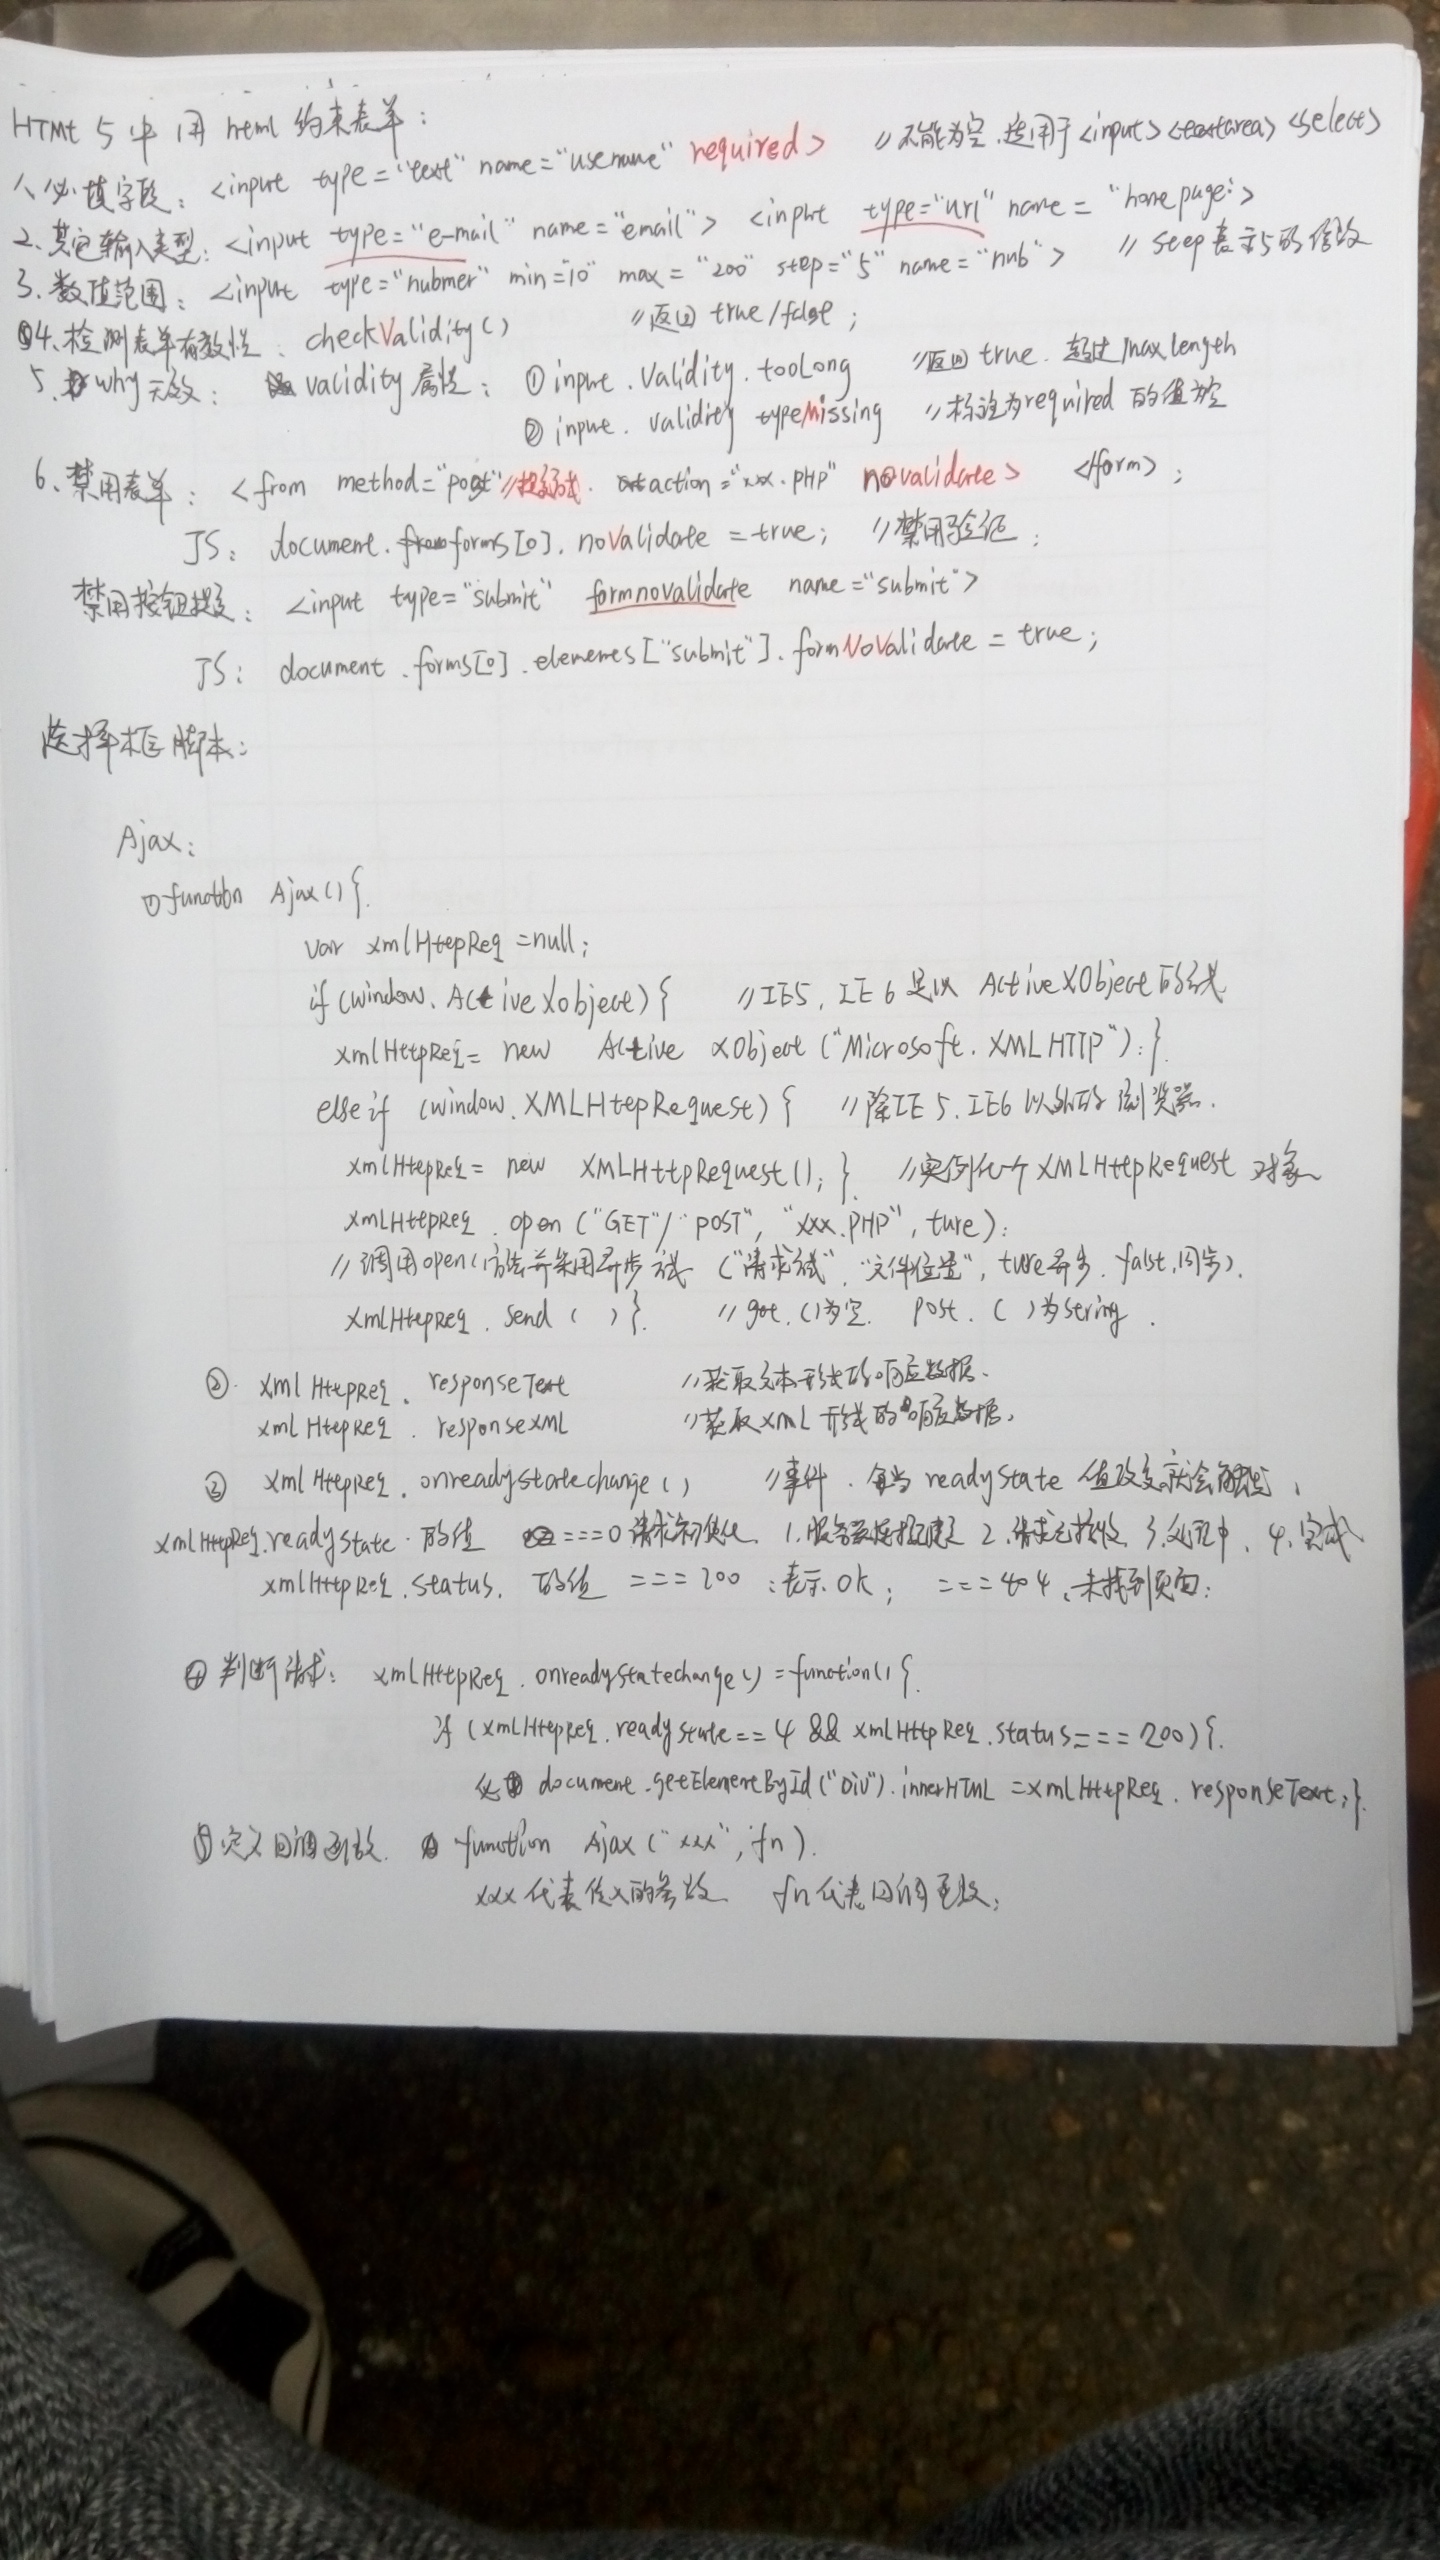 HTML5中用html约束表单：
1、必填字段：<input type="text" name="usename" required> //不能为空.适用于<input><textarea><select>
2、其它输入类型：<input type="e-mail" name="email"> <input type="url" name="homepage">
3、数值范围：<input type="nubmer" min="10" max="200" step="5" name="nub"> //step表示5的倍数
4、检测表单有效性：checkValidity() //返回true/false;
5、why无效：validity属性：①input.Validity.tooLong //返回true.超过maxlength
②input.validity typeMissing //标注为required的值为空
6、禁用表单：<from method="post"//提交方式. action="xx.PHP" novalidate> </form>;
JS：document.forms[0].noValidate=true; //禁用验证;
禁用按钮提交：<input type="submit" formnovalidate name="submit">
JS：document.forms[0].elements["submit"].formNoValidate=true;
选择框脚本：
Ajax：
①function Ajax(){
var xmlHttpReq=null;
if(window.ActiveXobject){ //IE5,IE6是以ActiveXObject的方式
xmlHttpReq=new ActiveXObject("Microsoft.XMLHTTP");}
else if(window.XMLHttpRequest){ //除IE5.IE6以外的浏览器.
xmlHttpReq=new XMLHttpRequest();} //实例化一个XMLHttpRequest对象
xmlHttpReq.open("GET"/"POST","xxx.PHP",ture);
//调用open()方法并采用异步方式("请求方式","文件位置",ture异步.falst,同步).
xmlHttpReq.send( )}. //get.()为空. post.( )为string.
②.xmlHttpReq.responseText //获取文本形式的响应数据.
xmlHttpReq.responseXML //获取xml形式的响应数据.
③ xmlHttpReq.onreadystatechange() //事件.每当readyState值改变就会触发;
xmlHttpReq.readyState.的值 ===0请求初始化 1.服务器连接建立 2.请求已接收 3.处理中、4.完成
xmlHttpReq.status.的值 ===200:表示OK; ===404、未找到页面;
④判断请求：xmlHttpReq.onreadystatechange()=function(){
if(xmlHttpReq.readystate==4&&xmlHttpReq.status===200){
document.getElementById("Div").innerHTML=xmlHttpReq.responseText;}
⑤定义回调函数. function Ajax("xxx",fn).
xxx代表传入的参数 fn代表回调函数;